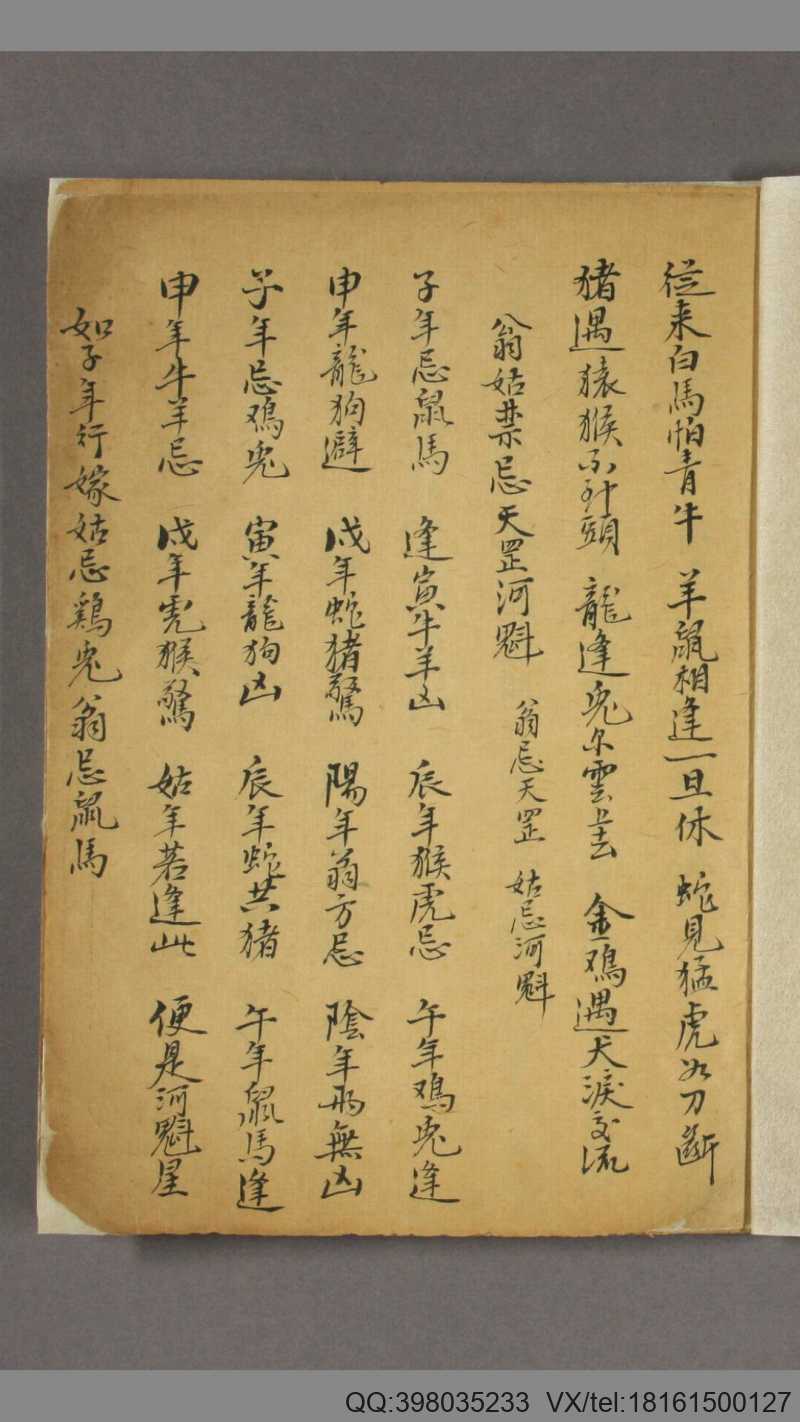 從来白馬怕青牛 羊鼠相逢一旦休 蛇見猛虎如刀斷
猪遇猿猴不到頭 龍逢兎尔雲 金鸡遇犬淚交流
翁姑禁忌天罡河魁 翁忌天罡 姑忌河魁
子年忌鼠馬 逢寅牛羊凶 辰年猴虎忌 午年鸡兎逢
申年龍狗避 戌年蛇猪驚 陽年翁方忌 陰年両無凶
子年忌鸡兎 寅年龍狗凶 辰年蛇共猪 午年鼠馬逢
申年牛羊忌 戌年虎猴驚 姑年若逢此 便是河魁星
如子年行嫁姑忌鷄兎翁忌鼠馬
QQ:398035233 VX/tel:18161500127